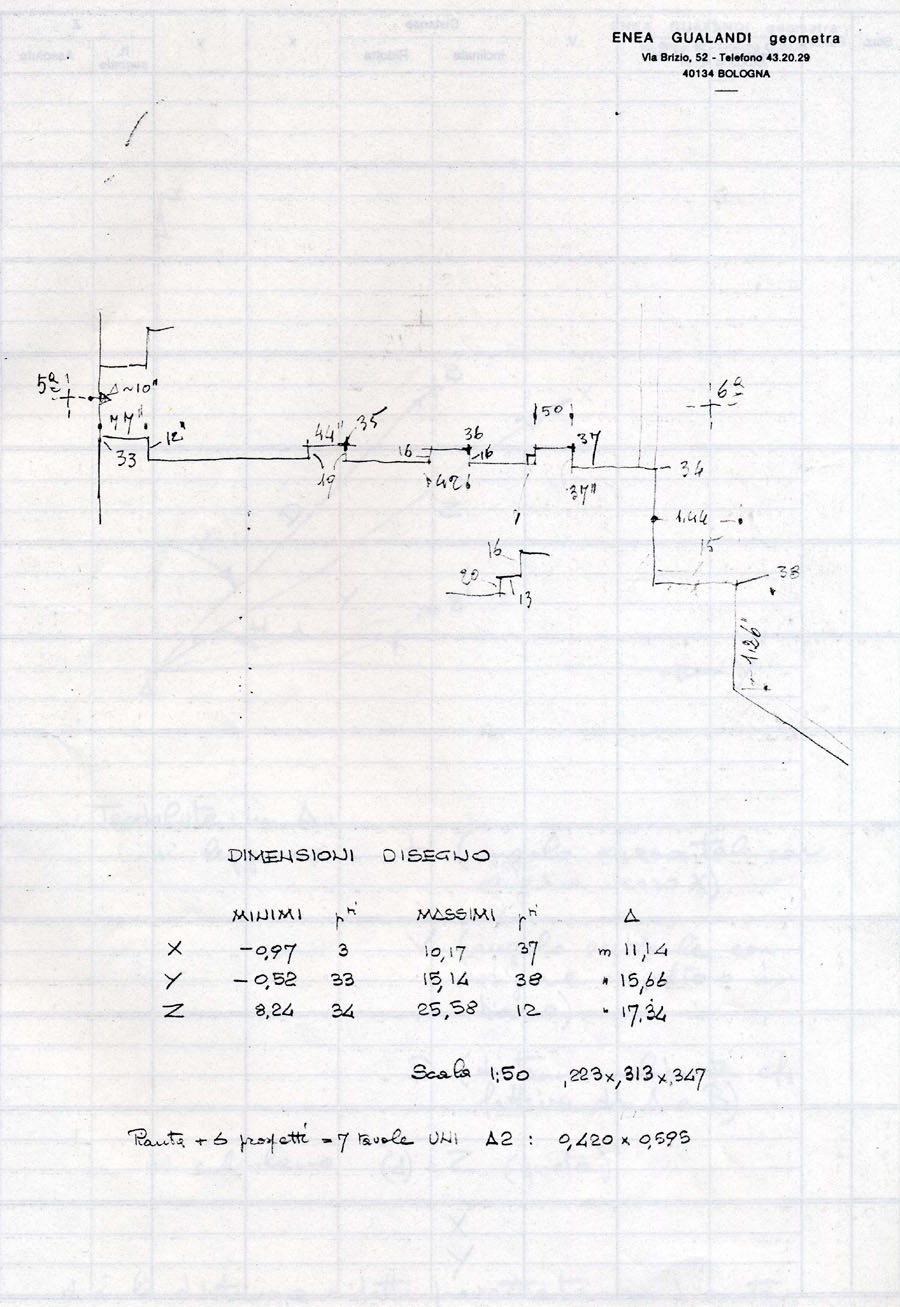 ENEA GUALANDI geometra
Via Brizio, 52 - Telefono 43.20.29
40134 BOLOGNA
5ª
Δ~10"
6ª
50
77"
12"
44"
35
36
37
33
19
16
16
426
37"
34
1.44
15
16
20
13
38
1.26"
DIMENSIONI DISEGNO
MINIMI pti MASSIMI pti Δ
X -0,97 3 10,17 37 m 11,14
Y -0,52 33 15,14 38 " 15,66
Z 8,24 34 25,58 12 " 17,34
Scala 1:50 ,223x,313x,347
Pianta + 6 prospetti = 7 tavole UNI A2 : 0,420 x 0,595